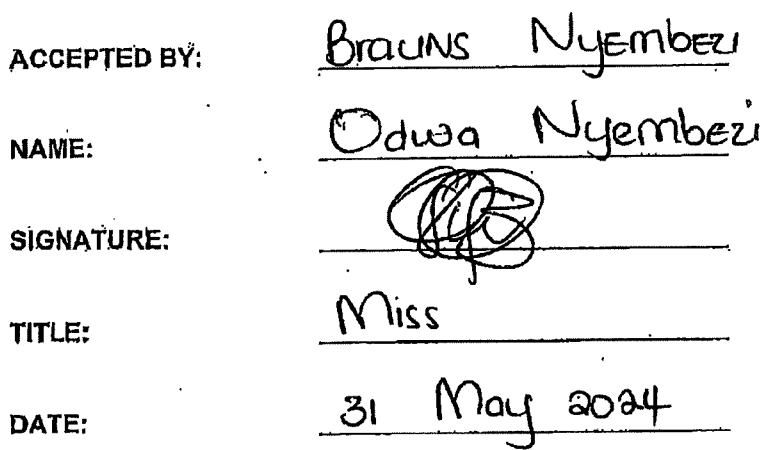 ACCEPTED BY: Brauns Nyembezi
NAME: Odwa Nyembezi
SIGNATURE:
TITLE: Miss
DATE: 31 May 2024